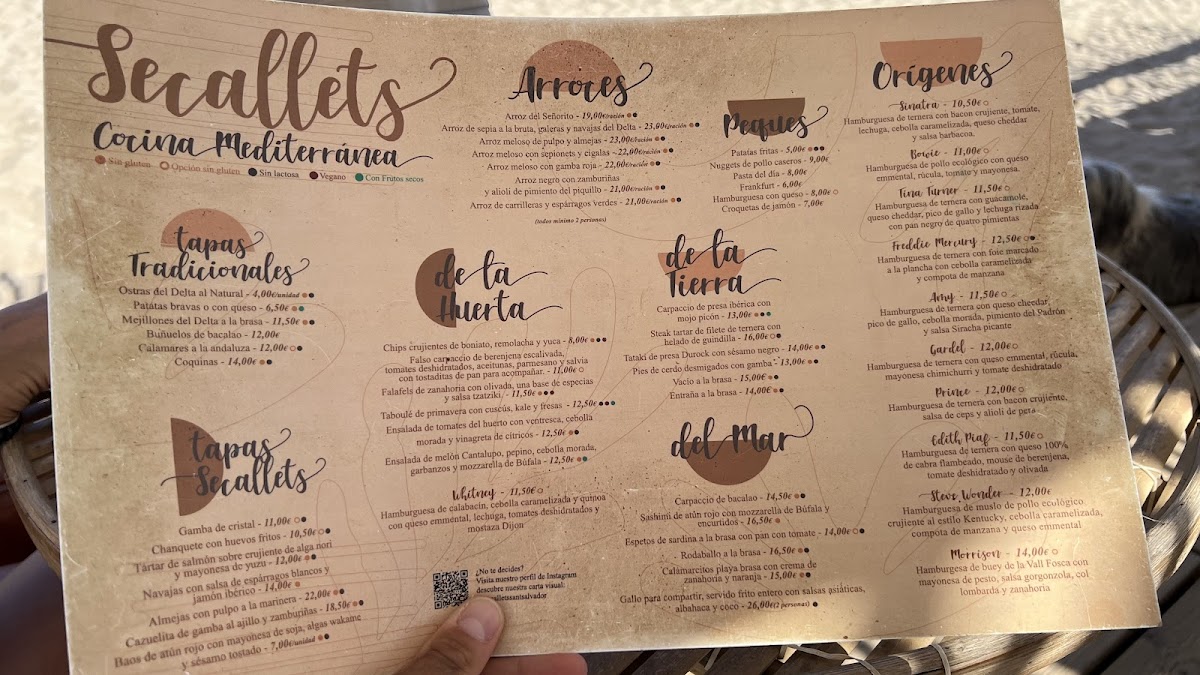 Secallets
Cocina Mediterránea
Sin gluten Opción sin gluten Sin lactosa Vegano Con Frutos secos
tapas
Tradicionales
Ostras del Delta al Natural - 4,00€/unidad
Patatas bravas o con queso - 6,50€
Mejillones del Delta a la brasa - 11,50€
Buñuelos de bacalao - 12,00€
Calamares a la andaluza - 12,00€
Coquinas - 14,00€
tapas
Secallets
Gamba de cristal - 11,00€
Chanquete con huevos fritos - 10,50€
Tártar de salmón sobre crujiente de alga nori
y mayonesa de yuzu - 12,00€
Navajas con salsa de espárragos blancos y
jamón ibérico - 14,00€
Almejas con pulpo a la marinera - 22,00€
Cazuelita de gamba al ajillo y zamburiñas - 18,50€
Baos de atún rojo con mayonesa de soja, algas wakame
y sésamo tostado - 7,00€/unidad
Arroces
Arroz del Señorito - 19,00€/ración
Arroz de sepia a la bruta, galeras y navajas del Delta - 23,00€/ración
Arroz meloso de pulpo y almejas - 23,00€/ración
Arroz meloso con sepionets y cigalas - 22,00€/ración
Arroz meloso con gamba roja - 22,00€/ración
Arroz negro con zamburiñas
y alioli de pimiento del piquillo - 21,00€/ración
Arroz de carrilleras y espárragos verdes - 21,00€/ración
(todos mínimo 2 personas)
de la
Huerta
Chips crujientes de boniato, remolacha y yuca - 8,00€
Falso carpaccio de berenjena escalivada,
tomates deshidratados, aceitunas, parmesano y salvia
con tostaditas de pan para acompañar. - 11,00€
Falafels de zanahoria con olivada, una base de especias
y salsa tzatziki - 11,50€
Taboulé de primavera con cuscús, kale y fresas - 12,50€
Ensalada de tomates del huerto con ventresca, cebolla
morada y vinagreta de cítricos - 12,50€
Ensalada de melón Cantalupo, pepino, cebolla morada,
garbanzos y mozzarella de Búfala - 12,50€
Whitney - 11,50€
Hamburguesa de calabacín, cebolla caramelizada y quinoa
con queso emmental, lechuga, tomates deshidratados y
mostaza Dijon
¿No te decides?
Visita nuestro perfil de Instagram
descubre nuestra carta visual:
Peques
Patatas fritas - 5,00€
Nuggets de pollo caseros - 9,00€
Pasta del día - 8,00€
Frankfurt - 6,00€
Hamburguesa con queso - 8,00€
Croquetas de jamón - 7,00€
de la
Tierra
Carpaccio de presa ibérica con
mojo picón - 13,00€
Steak tartar de filete de ternera con
helado de guindilla - 16,00€
Tataki de presa Durock con sésamo negro - 14,00€
Pies de cerdo desmigados con gamba - 13,00€
Vacío a la brasa - 15,00€
Entraña a la brasa - 14,00€
del Mar
Carpaccio de bacalao - 14,50€
Sashimi de atún rojo con mozzarella de Búfala y
encurtidos - 16,50€
Espetos de sardina a la brasa con pan con tomate - 14,00€
Rodaballo a la brasa - 16,50€
Calamarcitos playa brasa con crema de
zanahoria y naranja - 15,00€
Gallo para compartir, servido frito entero con salsas asiáticas,
albahaca y coco - 26,00€(2 personas)
Orígenes
Sinatra - 10,50€
Hamburguesa de ternera con bacon crujiente, tomate,
lechuga, cebolla caramelizada, queso cheddar
y salsa barbacoa.
Bowie - 11,00€
Hamburguesa de pollo ecológico con queso
emmental, rúcula, tomate y mayonesa.
Tina Turner - 11,50€
Hamburguesa de ternera con guacamole,
queso cheddar, pico de gallo y lechuga rizada
con pan negro de quatro pimientas
Freddie Mercury - 12,50€
Hamburguesa de ternera con foie marcado
a la plancha con cebolla caramelizada
y compota de manzana
Amy - 11,50€
Hamburguesa de ternera con queso cheddar,
pico de gallo, cebolla morada, pimiento del Padrón
y salsa Siracha picante
Gardel - 12,00€
Hamburguesa de ternera con queso emmental, rúcula,
mayonesa chimichurri y tomate deshidratado
Prince - 12,00€
Hamburguesa de ternera con bacon crujiente,
salsa de ceps y alioli de pera
Edith Piaf - 11,50€
Hamburguesa de ternera con queso 100%
de cabra flambeado, mouse de berenjena,
tomate deshidratado y olivada
Steve Wonder - 12,00€
Hamburguesa de muslo de pollo ecológico
crujiente al estilo Kentucky, cebolla caramelizada,
compota de manzana y queso emmental
Morrison - 14,00€
Hamburguesa de buey de la Vall Fosca con
mayonesa de pesto, salsa gorgonzola, col
lombarda y zanahoria